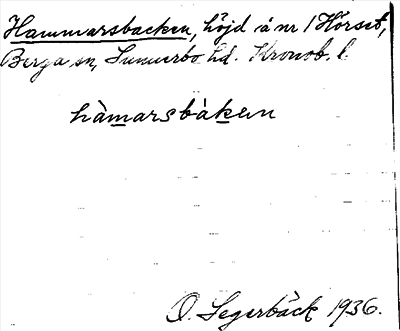 Hammarsbacken, höjd i å nr 1 Hörset,
Berga sn, Sunnerbo hd. Kronob. l.
hàmarsbàken
O. Segerbäck 1936.